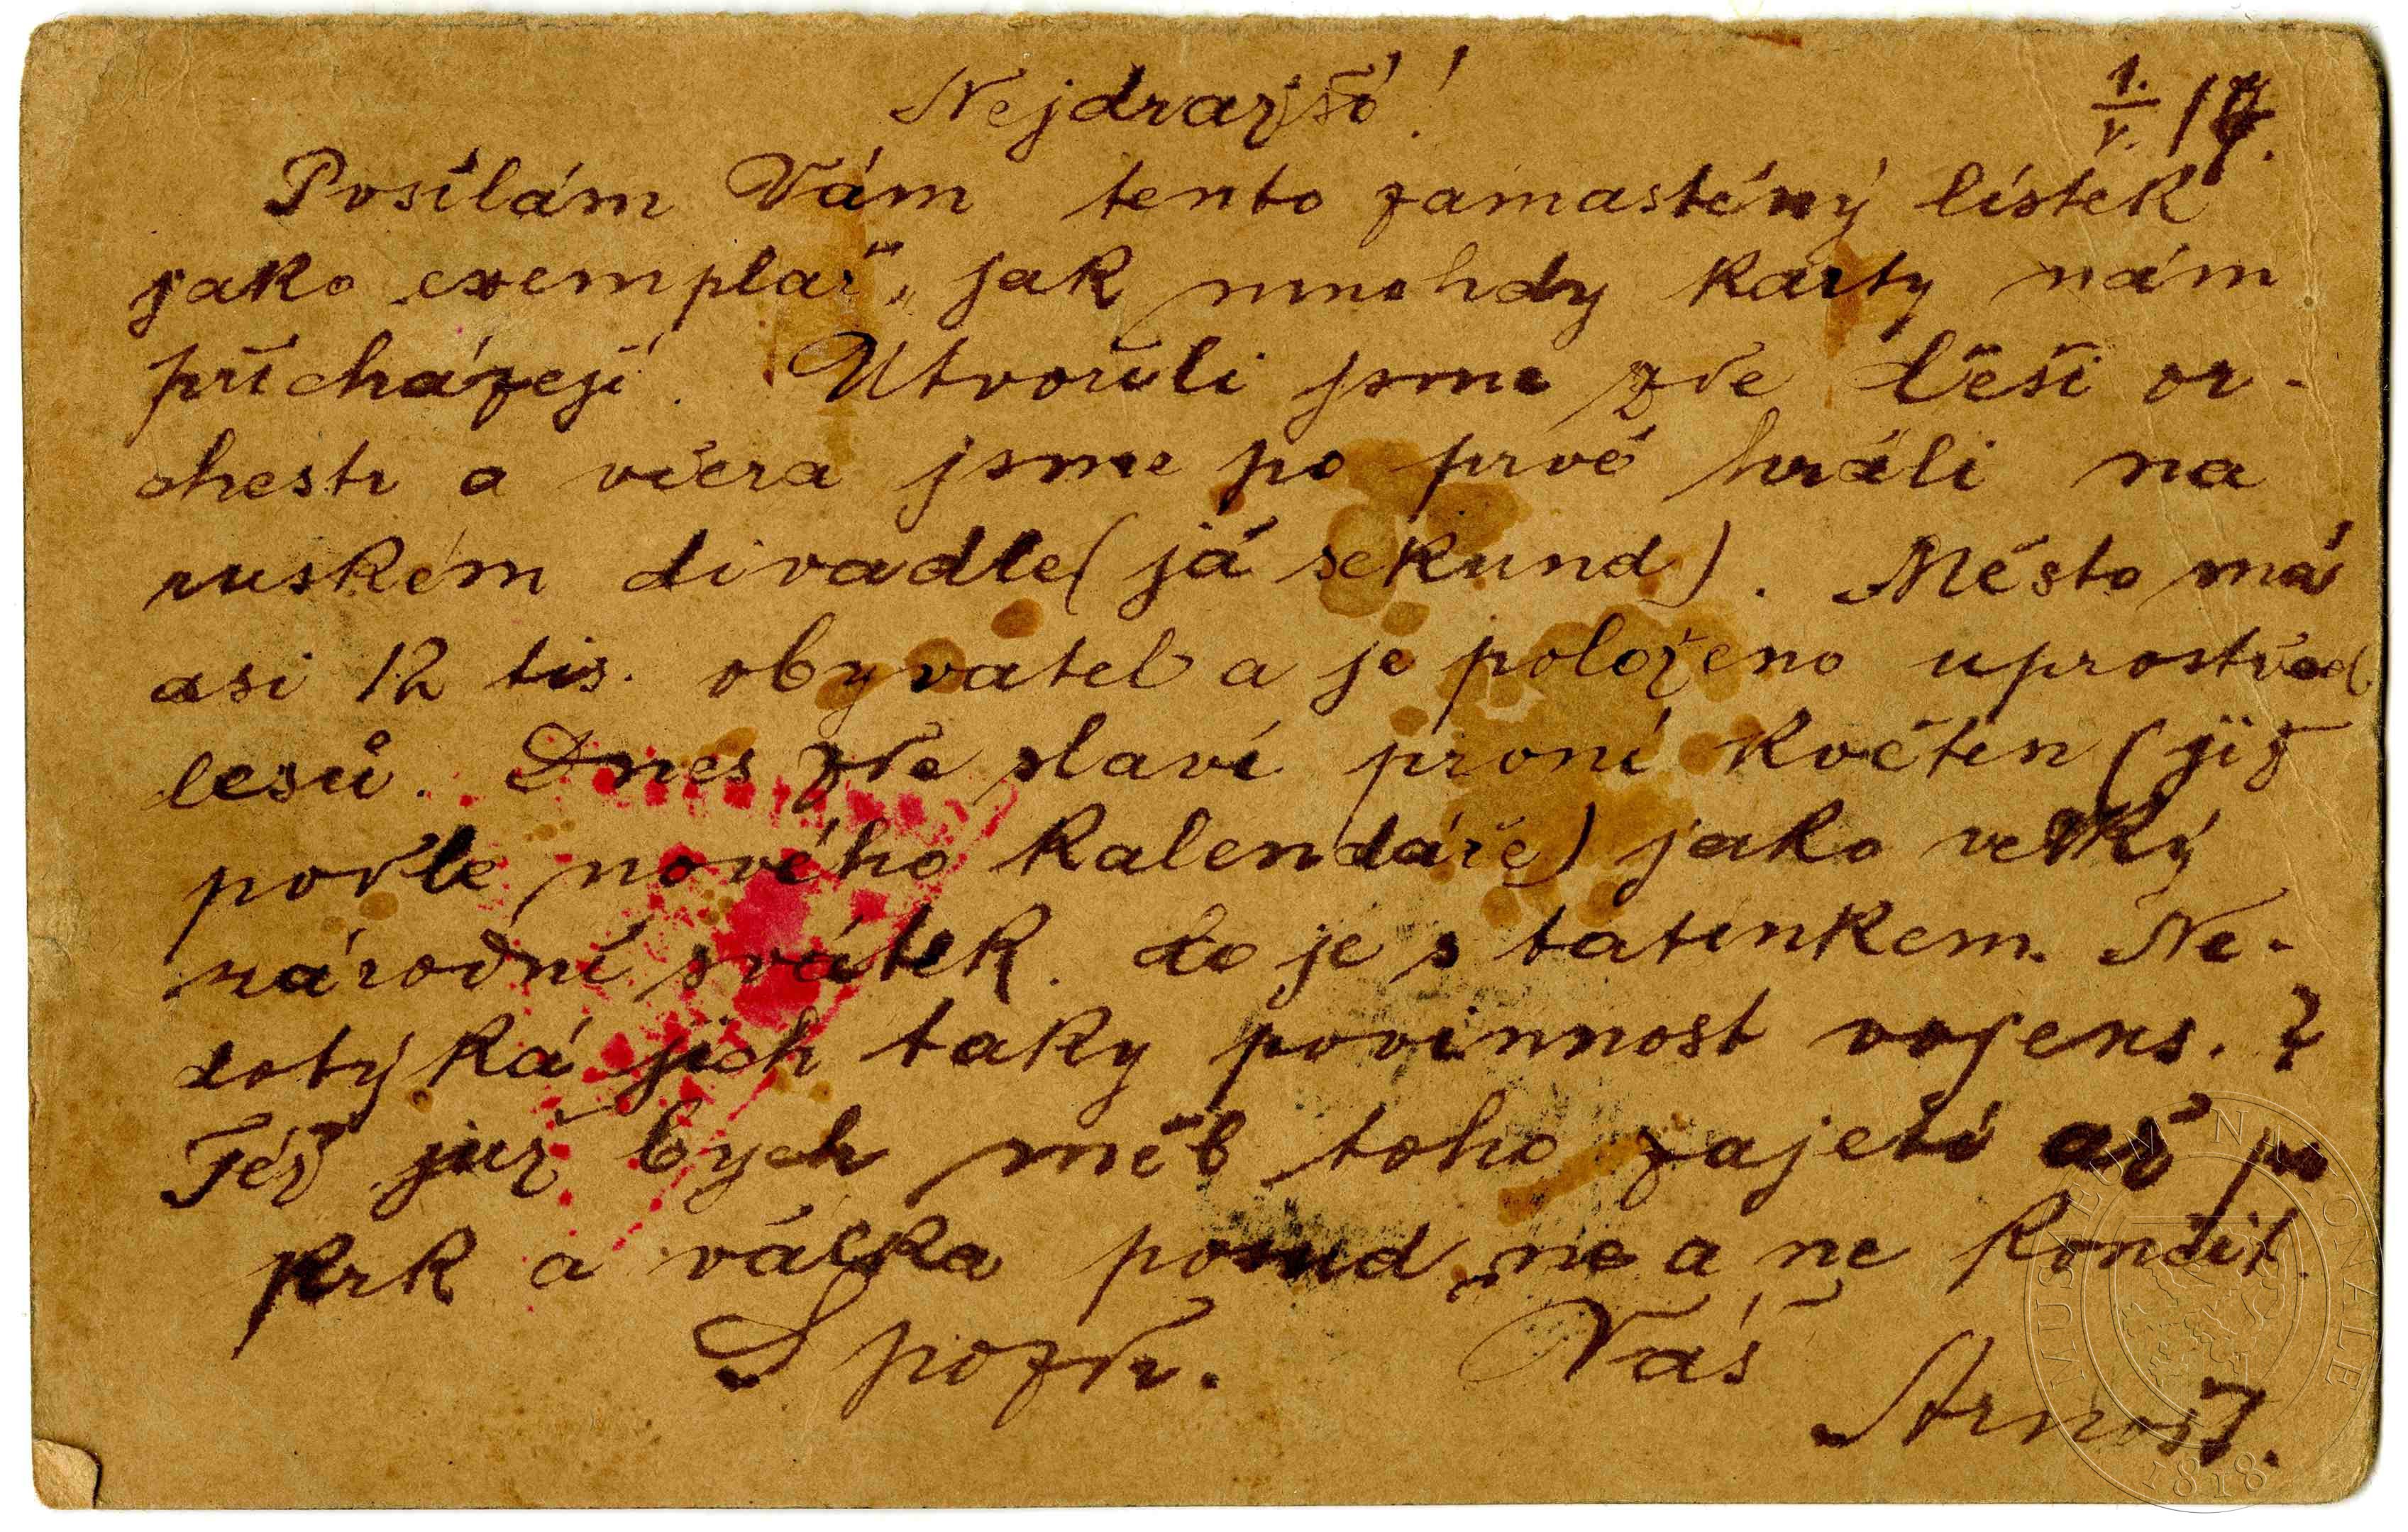 Nejdražší! 1./V. 17.
Posílám Vám tento zamastěný lístek
jako „exemplař“, jak mnohdy karty nám
přicházejí. Utvořili jsme zde Češi or-
chestr a včera jsme po prvé hráli na
ruském divadle (já sekund). Město má
asi 12 tis. obyvatel a je položeno uprostřed
lesů. Dnes zde slaví první květen (již
podle nového kalendáře) jako velký
národní svátek. Co je s tatínkem. Ne-
dotýká jich taky povinnost vojens. ?
Též již bych měl toho zajetí až po
krk a válka posud ne a ne končit.
S pozdr. Váš
Arnošt.
MUSEUM NATIONALE
1818